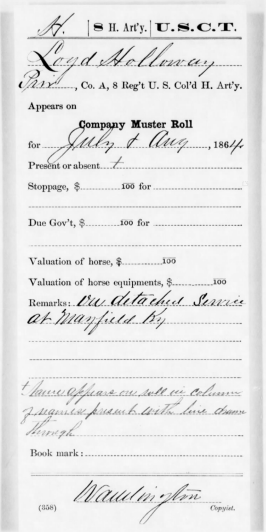 H. | 8 H. Art'y. | U.S.C.T.
Loyd Holloway
Priv, Co. A, 8 Reg't U. S. Col'd H. Art'y.
Appears on
Company Muster Roll
for July & Aug, 1864
Present or absent +
Stoppage, $ 100 for
Due Gov't, $ 100 for
Valuation of horse, $ 100
Valuation of horse equipments, $ 100
Remarks: On detached Service
at Mayfield Ky
+ Name appears on roll in column
of names present with line drawn
through
Book mark:
Waddington
(358) Copyist.